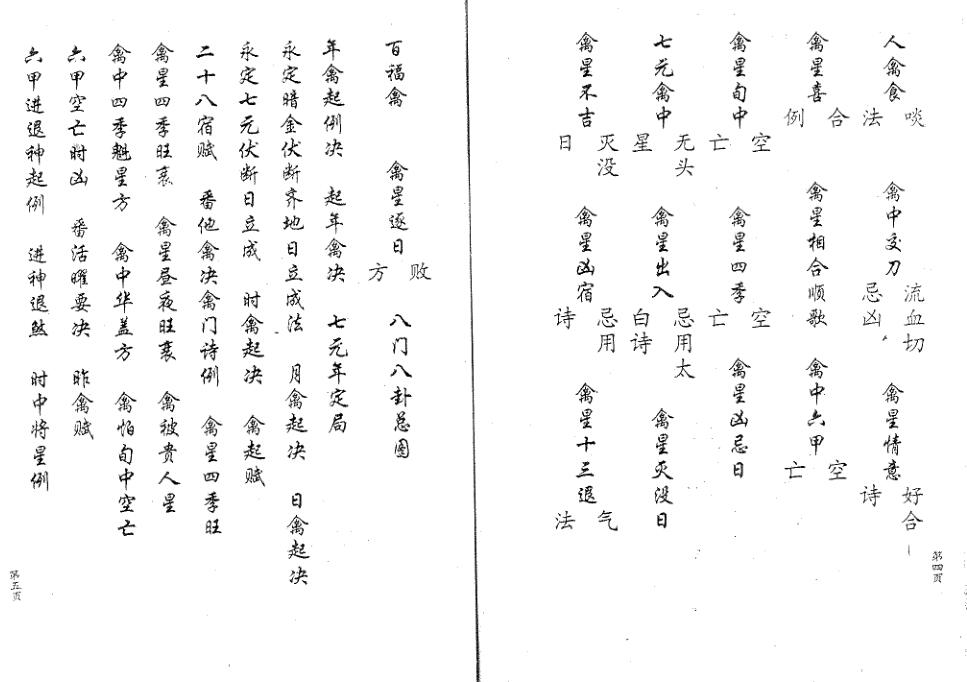 人禽食啖法 禽中交刀流血切忌凶 禽星情意好合诗
禽星喜合例 禽星相合顺歌 禽中六甲空亡
禽星旬中空亡 禽星四季空亡 禽星凶忌日
七元禽中无头星 禽星出入忌用太白诗 禽星灭没日
禽星不吉灭没日 禽星凶宿忌用诗 禽星十三退气法
第四页
百福禽 禽星逐日败方 八门八卦总图
年禽起例决 起年禽决 七元年定局
永定暗金伏断齐地日立成法 月禽起决 日禽起决
永定七元伏断日立成 时禽起决 禽起赋
二十八宿赋 番他禽决禽门诗例 禽星四季旺
禽星四季旺衰 禽星昼夜旺衰 禽被贵人星
禽中四季魁星方 禽中华盖方 禽怕旬中空亡
六甲空亡时凶 番活曜要决 昨禽赋
六甲进退神起例 进神退煞 时中将星例
第五页